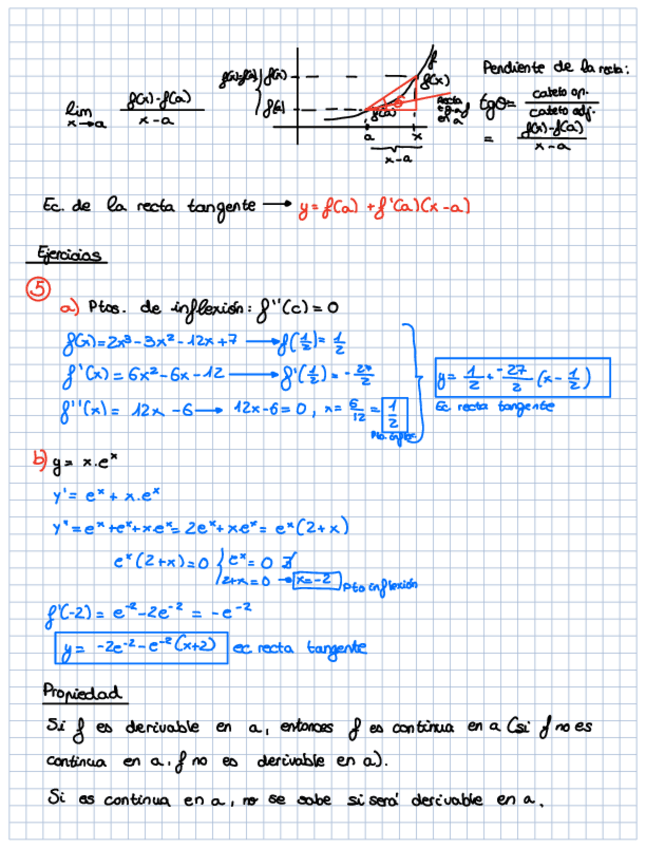 lim x→a (f(x)-f(a))/(x-a)
f(x)-f(a) { f(x)
f(a)
f
f(x)
f(a)
Recta tg a f en a
a x
x-a
Pendiente de la recta:
tgθ = cateto op. / cateto adj.
= (f(x)-f(a))/(x-a)
Ec. de la recta tangente → y = f(a) + f'(a)(x-a)
Ejercicios
5
a) Ptos. de inflexión: f''(c) = 0
f(x) = 2x³-3x²-12x+7 → f(1/2) = 1/2
f'(x) = 6x²-6x-12 → f'(1/2) = -27/2
f''(x) = 12x-6 → 12x-6=0, x = 6/12 = 1/2
Pto. inflex.
y = 1/2 + -27/2 (x - 1/2)
Ec recta tangente
b) y = x.eˣ
y' = eˣ + x.eˣ
y'' = eˣ+eˣ+xeˣ = 2eˣ+xeˣ = eˣ(2+x)
eˣ(2+x)=0 { eˣ=0 ∄
2+x=0 → x=-2 Pto inflexión
f'(-2) = e⁻²-2e⁻² = -e⁻²
y = -2e⁻²-e⁻²(x+2) ec recta tangente
Propiedad
Si f es derivable en a, entonces f es continua en a (si f no es
continua en a, f no es derivable en a).
Si es continua en a, no se sabe si será derivable en a.